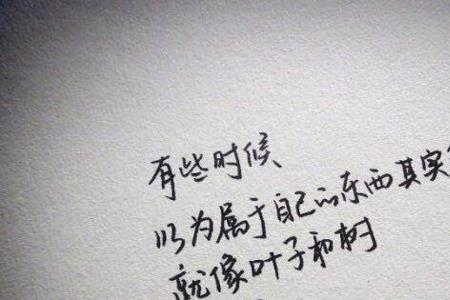 有些时候
以为属于自己的东西其实
就像叶子和树